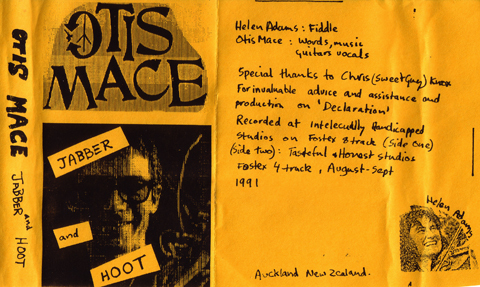 OTIS MACE JABBER and HOOT
OTIS
MACE
JABBER
and
HOOT
Helen Adams : Fiddle
Otis Mace : Words, music
guitars vocals
Special thanks to Chris (Sweet Guy) Knox
For invaluable advice and assistance and
production on 'Declaration'
Recorded at Intelecudly Handicapped
Studios on Fostex 8 track (Side One)
(Side two): Tasteful & Honest studios
Fostex 4 track, August-Sept
1991
Helen Adams
Auckland New Zealand.